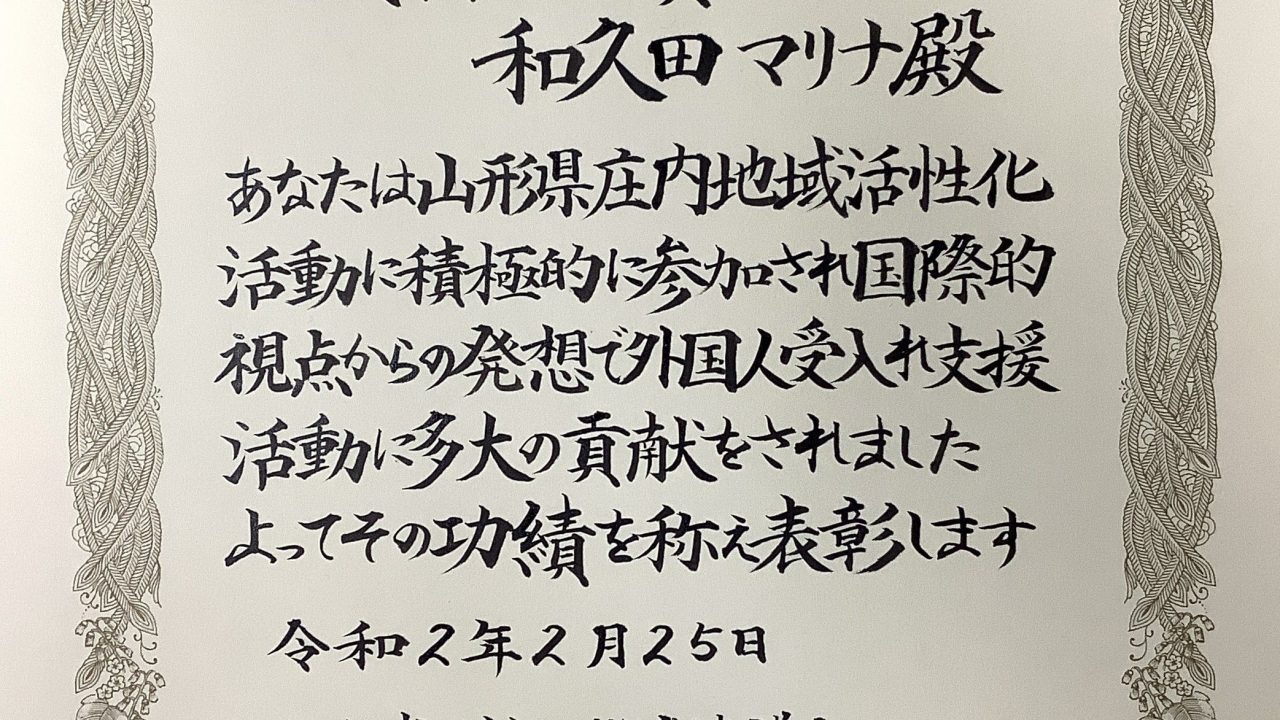 和久田マリナ殿
あなたは山形県庄内地域活性化
活動に積極的に参加され国際的
視点からの発想で外国人受入れ支援
活動に多大の貢献をされました
よってその功績を称え表彰します
令和2年2月25日